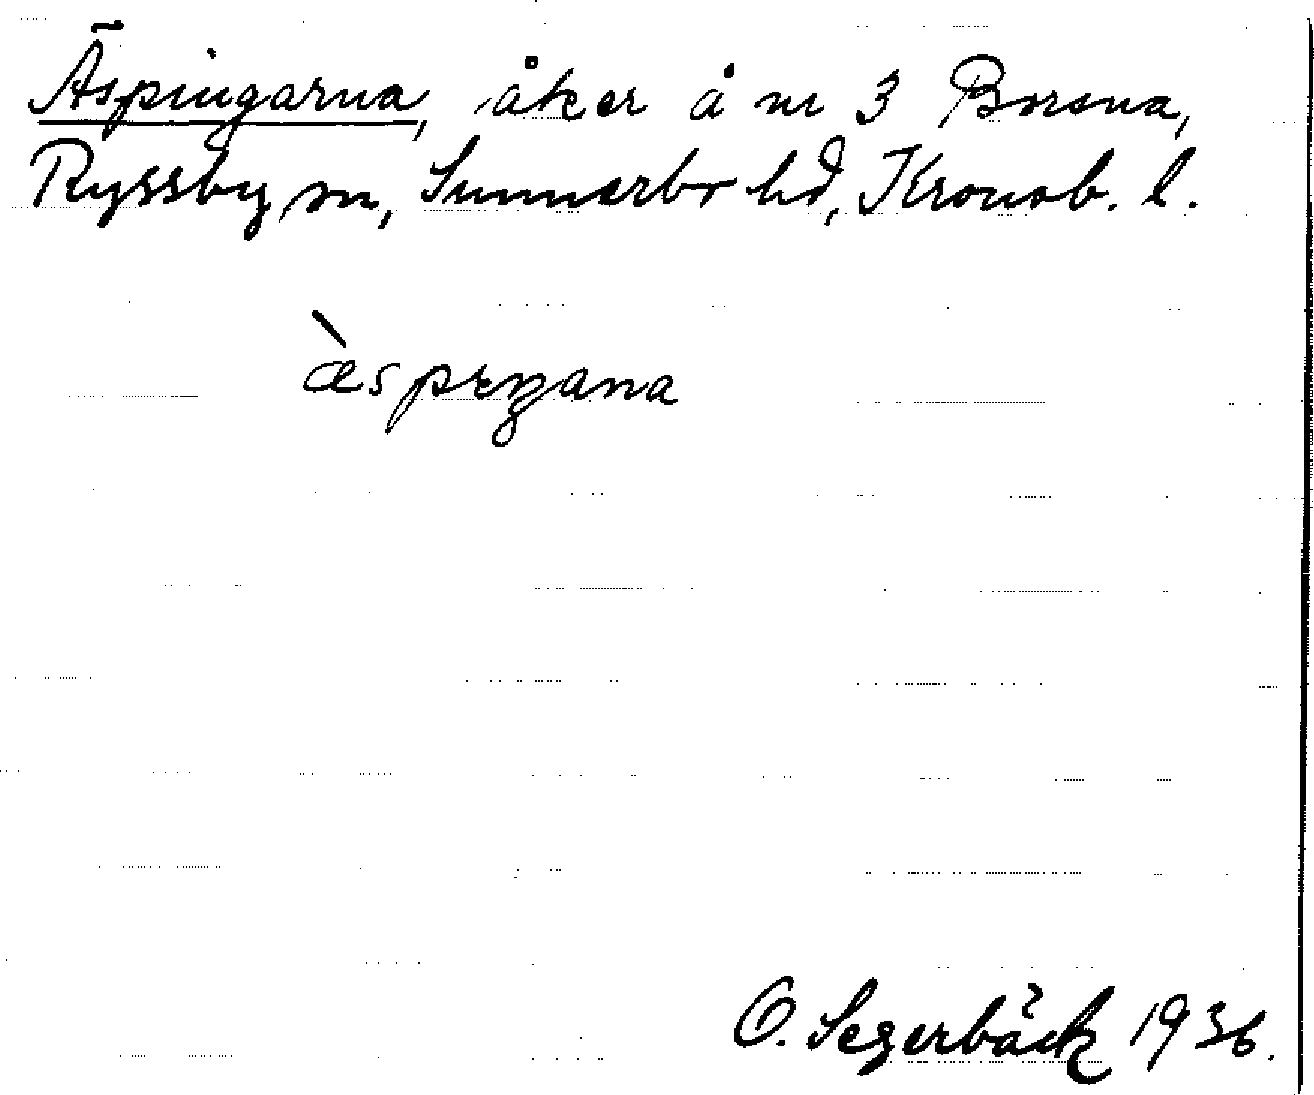 Äspingarna, åker å nr 3 Borsna,
Ryssby sn, Sunnerbo hd, Kronob. l.
æ̀spɪŋana
O. Segerbäck 1936.